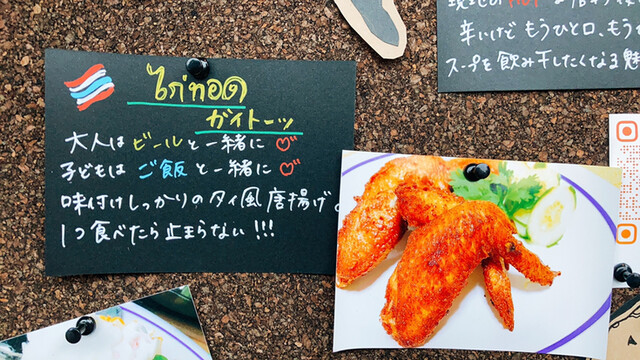 ไก่ทอด
ガイトーッ
大人は ビールと一緒に
子どもは ご飯と一緒に
味付けしっかりのタイ風唐揚げ。
1つ食べたら止まらない!!!
辛いけど もうひと口、もう
スープを飲み干したくなる魅